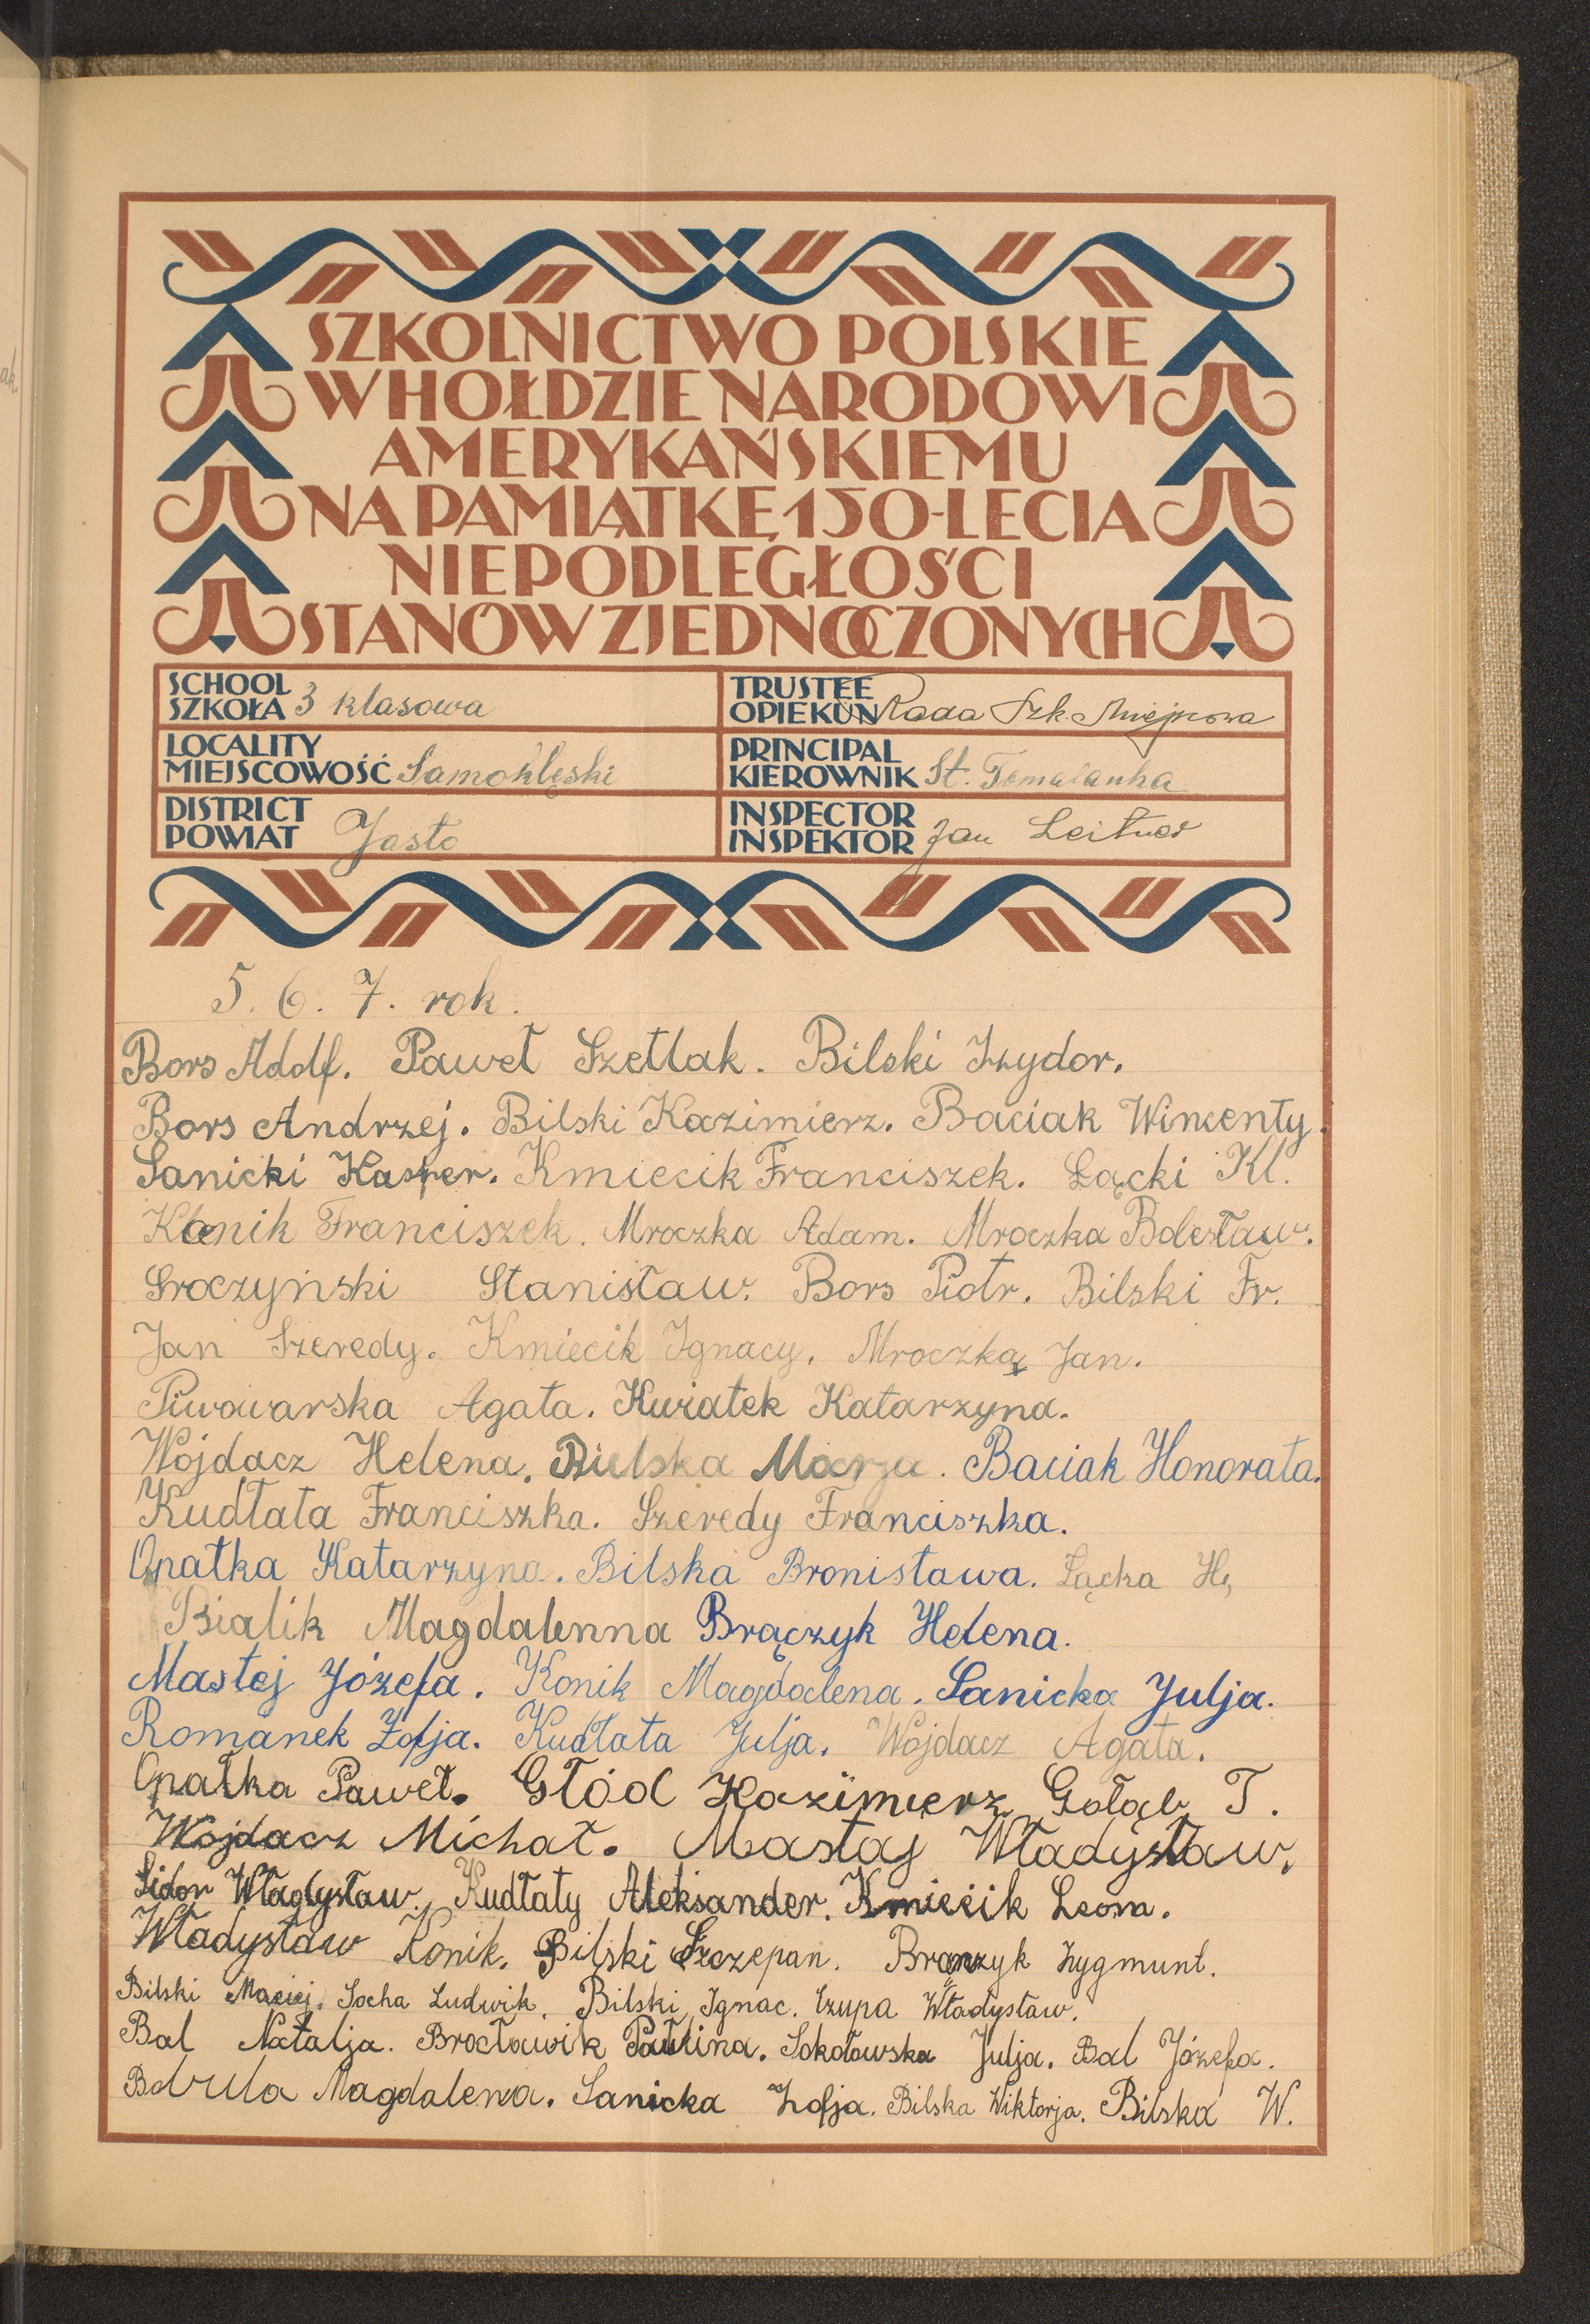 SZKOLNICTWO POLSKIE
W HOŁDZIE NARODOWI
AMERYKAŃSKIEMU
NA PAMIĄTKĘ 150-LECIA
NIEPODLEGŁOŚCI
STANÓW ZJEDNOCZONYCH
SCHOOL
SZKOŁA 3 klasowa
TRUSTEE
OPIEKUN Rada Szk. Miejscowa
LOCALITY
MIEJSCOWOŚĆ Samoklęski
PRINCIPAL
KIEROWNIK St.
DISTRICT
POWIAT Jasło
INSPECTOR
INSPEKTOR Jan Leitner
5. 6. 7. rok.
Bors Adolf. Paweł Szetlak. Bilski Izydor.
Bors Andrzej. Bilski Kazimierz. Baciak Wincenty.
Sanicki Kasper. Kmiecik Franciszek. Łącki Kl.
Konik Franciszek. Mroczka Adam. Mroczka Bolesław.
Sroczyński Stanisław. Bors Piotr. Bilski Fr.
Jan Szeredy. Kmiecik Ignacy. Mroczka Jan.
Piwowarska Agata. Kwiatek Katarzyna.
Wojdacz Helena. Bielska Marja. Baciak Honorata.
Kudłata Franciszka. Szeredy Franciszka.
Opałka Katarzyna. Bilska Bronisława. Łącka H.
Bialik Magdalenna Brączyk Helena.
Mastej Józefa. Konik Magdalena. Sanicka Julja.
Romanek Zofja. Kudłata Julja. Wojdacz Agata.
Opałka Paweł. Głód Kazimierz Gołąb T.
Wojdacz Michał. Mastaj Władysław.
Sidor Władysław. Kudłaty Aleksander. Kmiecik Leon.
Władysław Konik. Bilski Szczepan. Brączyk Zygmunt.
Bilski Maciej. Socha Ludwik. Bilski Ignac. Czupa Władysław.
Bal Natalja. Brocławik Paulina. Sokołowska Julja. Bal Józefa.
Magdalena. Sanicka Zofja. Bilska Wiktorja. Bilska W.